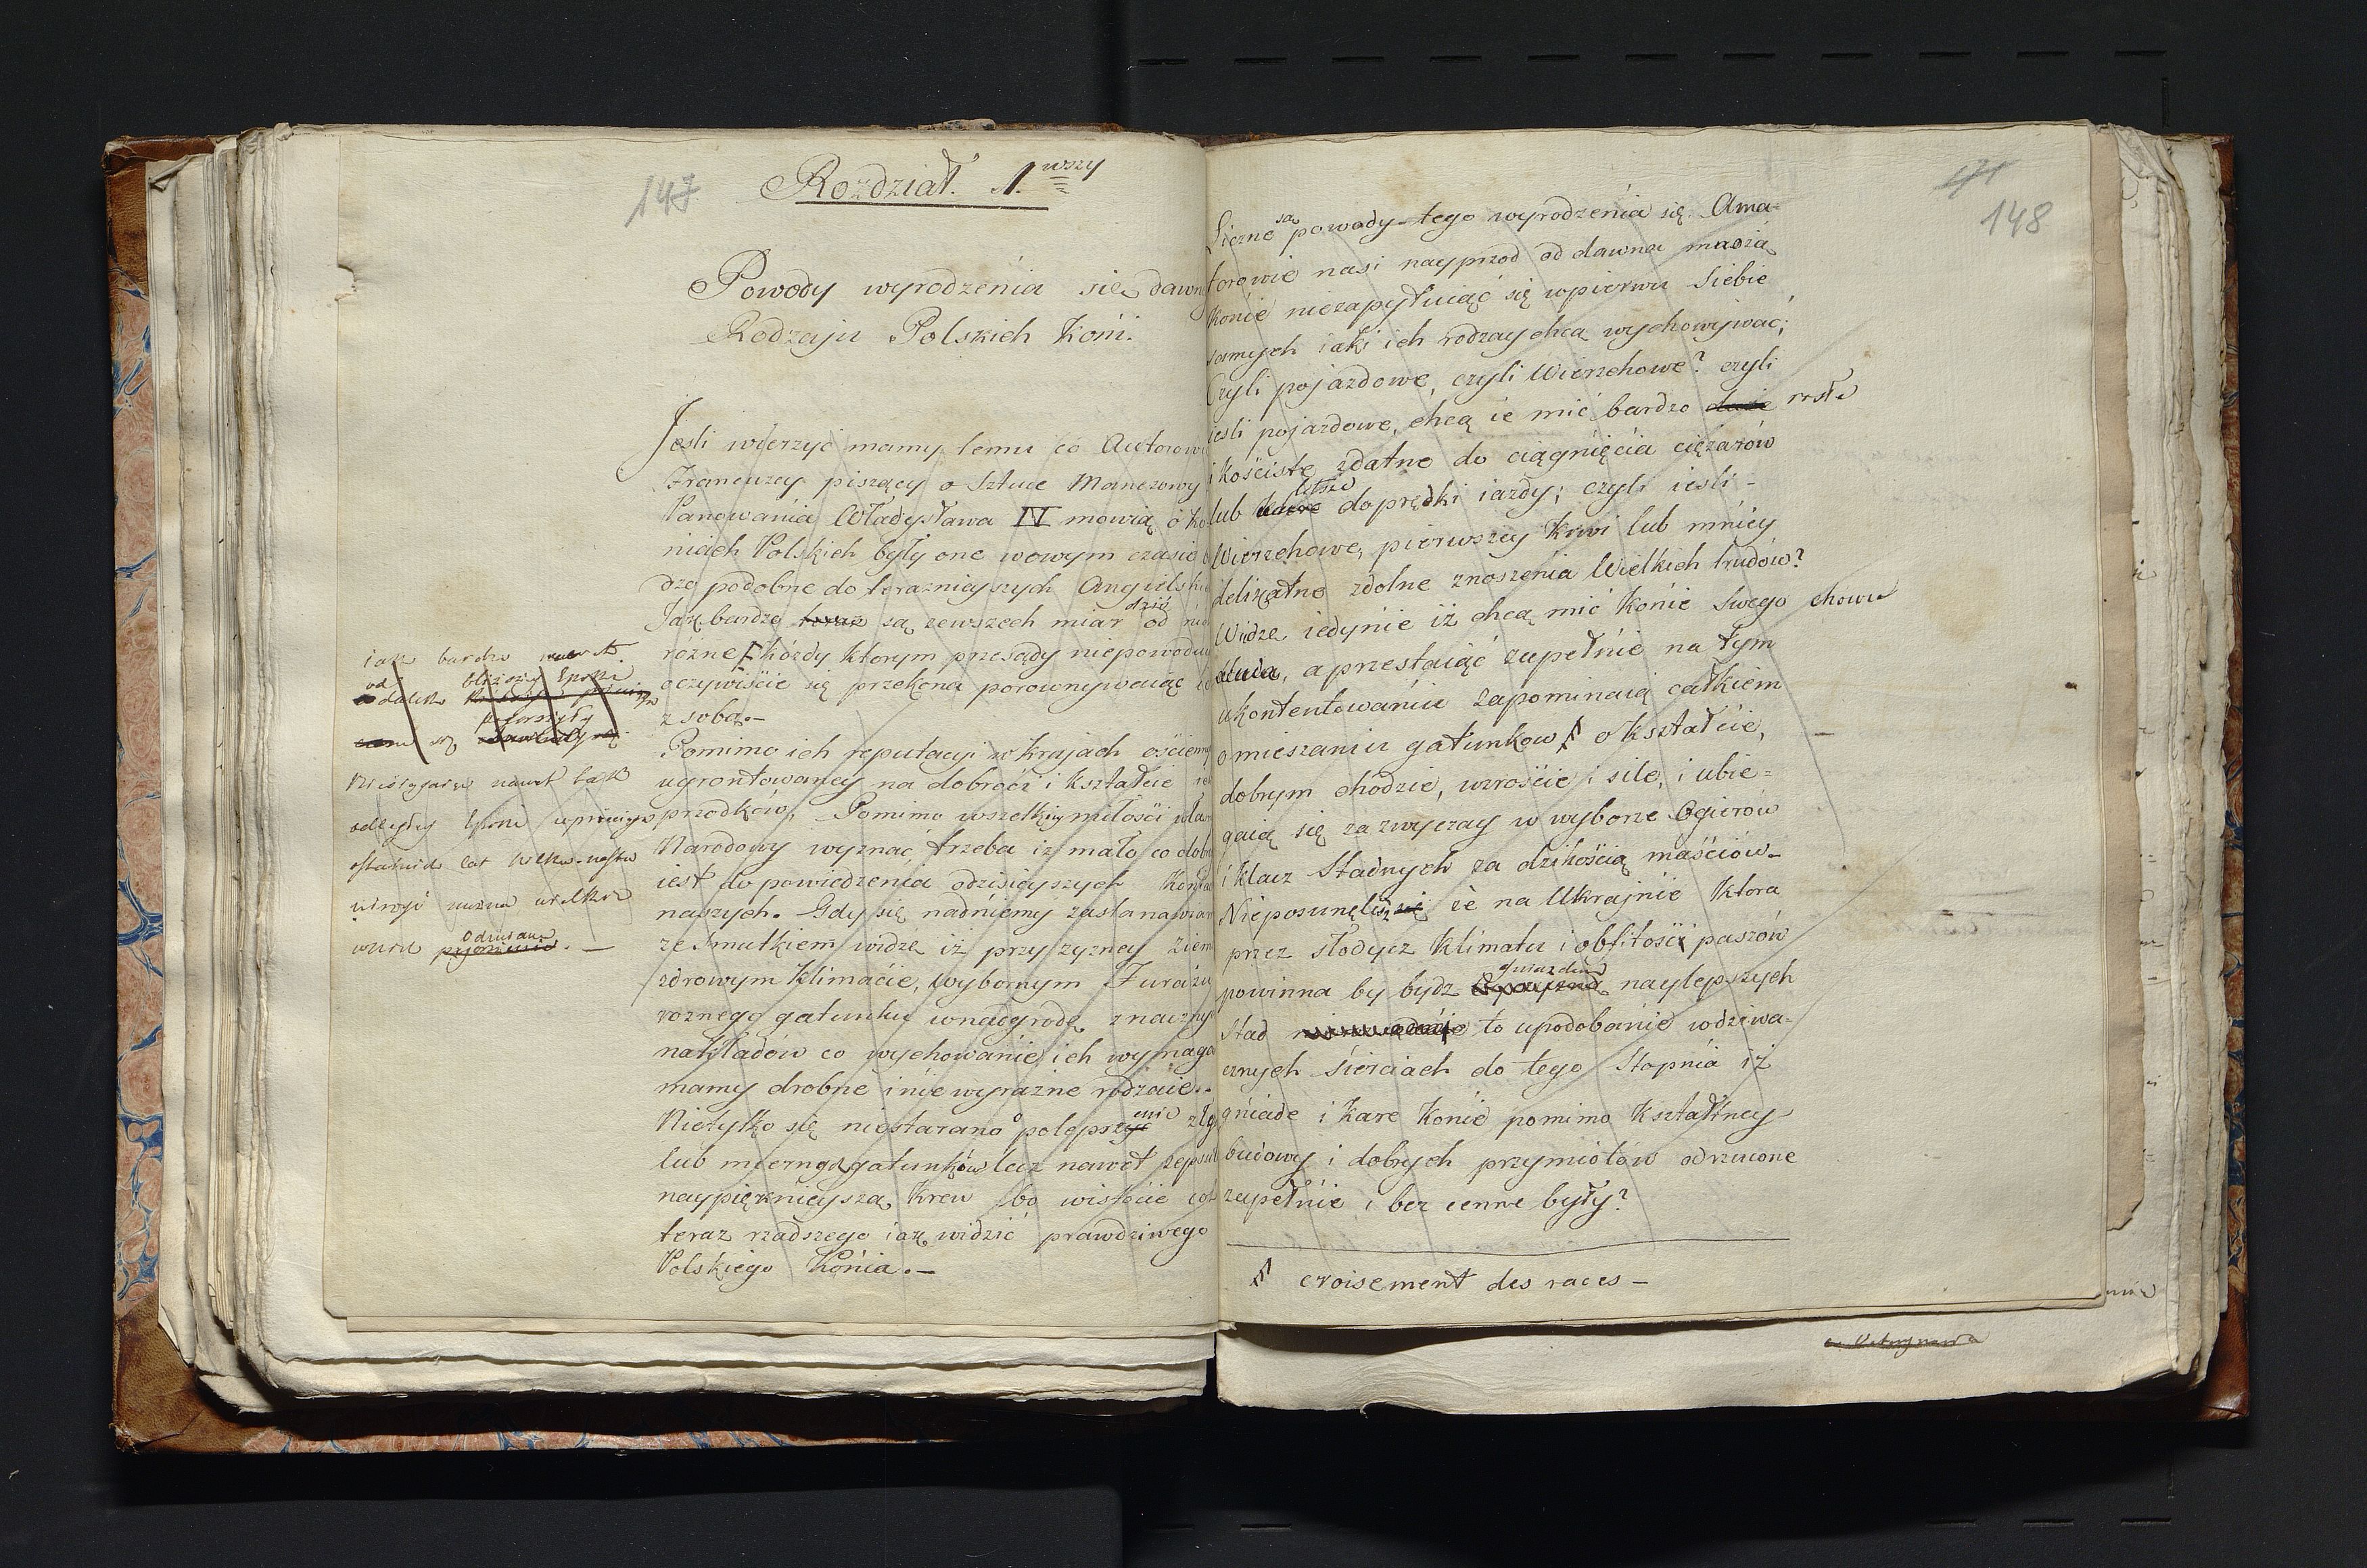 147
Rozdział. 1.wszy
Powody wyrodzénia się dawn
Rodzaju Polskich Koni.
Jesli wierzyć mamy temu co Autorow
Francuzcy piszący o Sztuce Manezowy
Panowania Władysława IV mowią o Ko
niach Polskich były one wowym czasie
dzo podobne do terazniejszych Angielski
Jak bardzo teraz są zewszech miar dziś od nich
rożne kózdy ktorym przesądy niepowodu
oczywiście się przekona porownywaiąc
z sobą.–
Pomimo ich reputacyi w krajach ościenny
ugrontowaney na dobroci i kształcie
przodków, Pomimo wszelkiey miłości wła
Narodowy wyznać trzeba iz mało co dobr
iest do powiedzenia o dzisieyszych Koni
naszych. Gdy się nadniemy zastanawiam
ze Smutkiem widzę iż przy zyzney Ziem
zdrowym Klimacie, wybornym Furażu
roznego gatunku wnadgrodę znaczny
nakładów co wychowanie ich wymaga
mamy drobne i nie wyraźne rodzaie.–
Nietylko się niestarano o polepszenie złą
lub mierną gatunków lecz nawet zepsu
naypiękniejszą Krew bo wistocie coż
teraz rzadszego iak widzić prawdziwego
Polskiego Konia.–
iak bardzo
od bliższey Epoki
Niesięgaiąc nawet tak
odległey Epoki uprzeciągu
ostatnich lat kilku-nastu
wielka
odmiana
148
Liczne są powody tego wyrodzénia się. Ama-
torowie nasi nayprzod od dawna maią
Konie niezapytuiąć się wpierwu Siebie
samych iaki ich rodzay chcą wychowywać;
Czyli pojazdowe, czyli Wierzchowe? czyli
iesli pojazdowe, chcą ie mić bardzo duże rosłe
i kościste zdatne do ciągnięcia ciężarów
lub letsze do prędki iazdy; czyli iesli –
Wierzchowe, pierwszey Krwi lub mniey
delikatne zdolne znoszenia Wielkich trudów?
Widzę iedynie iż chcą mić Konie swego chowu
, a przestaiąć zupełnie na tym
ukontentowaniu zapominaią całkiem
o mieszaniu gatunkow # o kształcie,
dobrym chodzie, wzroście i sile, i ubie=
gaią się za zwyczay w wyborze Ogierów
i klacz Stadnych za dzikością maściów.
Nieposunęłoż się że na Ukrajnie Ktora
przez słodycz Klimatu i obfitość paszów
powinna by bydz gniazdem naylepszych
Stad to upodobanie wdziwa-
cznych Sierciach do tego Stopnia iż
gniade i Kare Konie pomimo Kształtney
budowy i dobrych przymiotów odrzucone
zupełnie i bez cenne były?
# croisement des races –